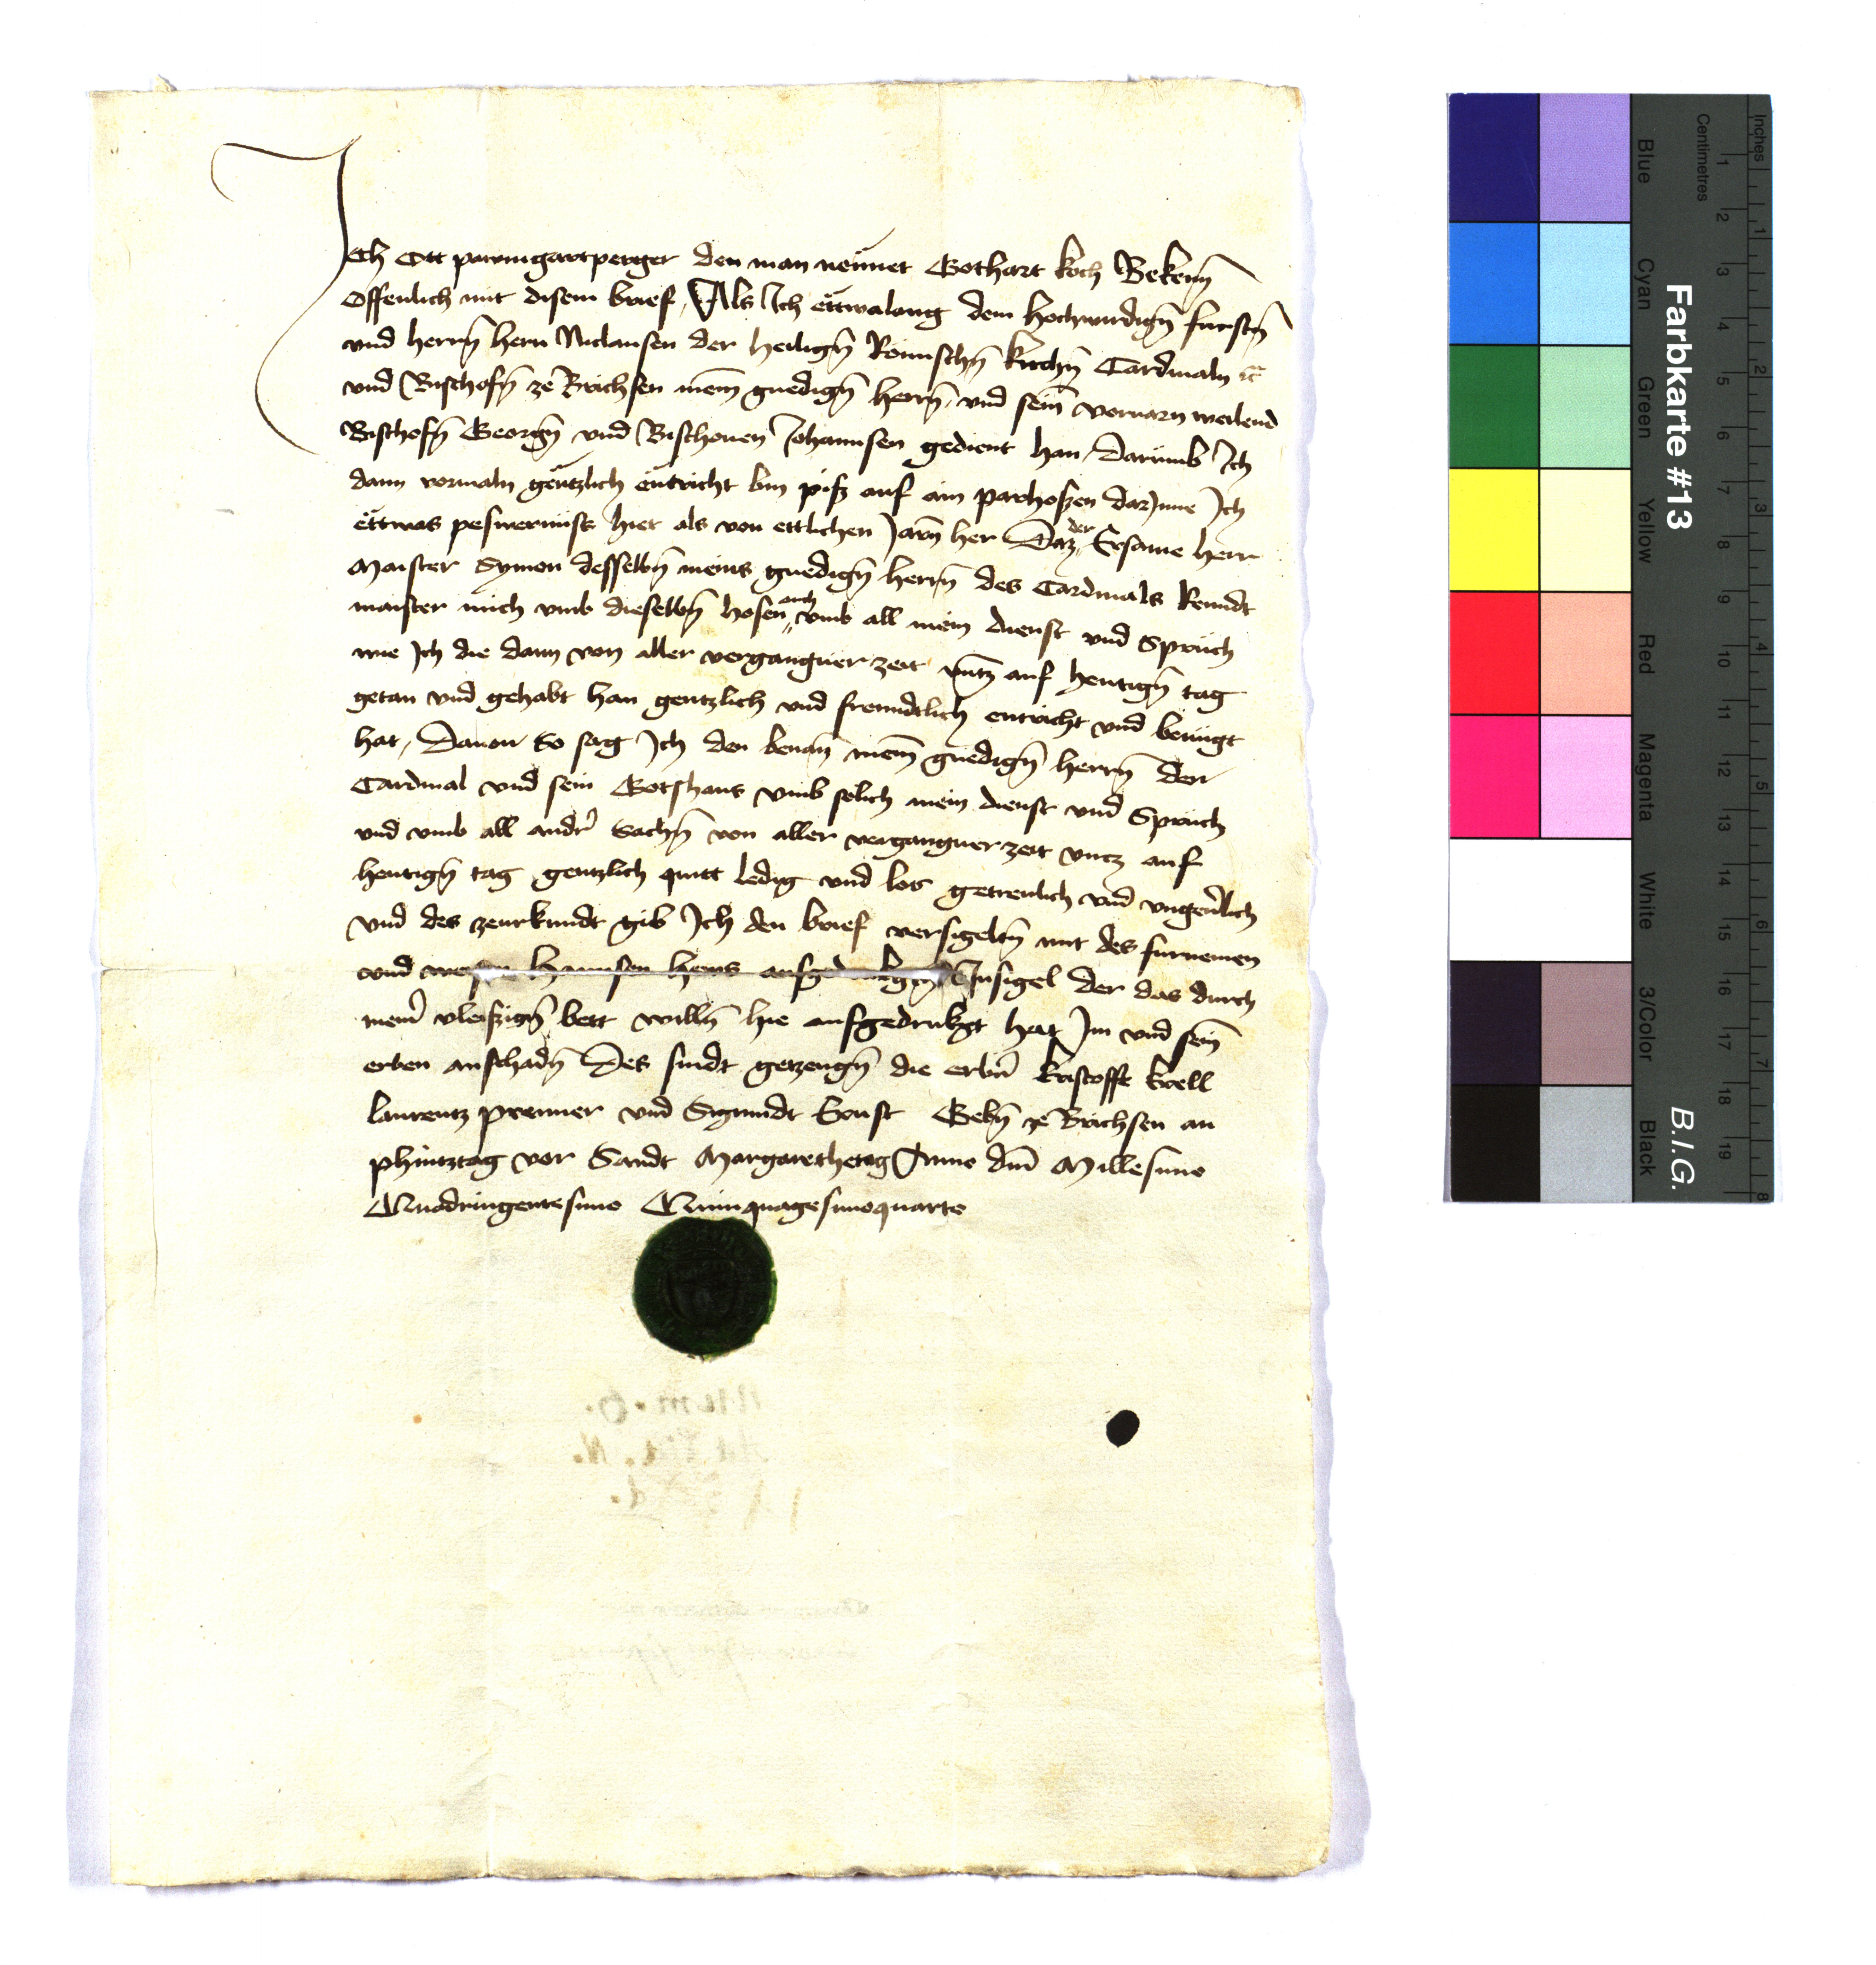 Ich Ott pawmgartperger den man nennet Gothart koch Bekenn̄
Offenlich mit disem brief, Als Ich ettwalang dem hochwirdign̄ furstn̄
vnd herrn̄ hern Niclausen der heiligen̄ Römischn̄ kirchn̄ Cardinaln ꝛc
vnd Bischofn̄ ze Brichsen meinē gnedign̄ herrn̄, vnd sein̄ voruarn weilend
Bischofn̄ Georgn̄ vnd Bischouen Johannsen gedient han, Darumb Ich
dann vormaln gentzlich entricht bin pisz auf ain parhosen darJnne Ich
ettwas peswernuss hiet als von ettlichen Jarn̄ her Daz der Ersame herr
Maister Symon desselbn̄ meins gnedign̄ herrn̄ des Cardinals Renndt
maister mich vmb dieselbn̄ hosen auch vmb all mein dienst vnd Sprüch
wie Ich die dann von aller vergangner zeit vntz auf hewtign̄ tag
getan vnd gehabt han gentzlich vnd freundtlich entricht vnd benügt
hat, Dauon So sag Ich den benan̄ meinē gnedign̄ herrn̄ den
Cardinal vnd sein Gotshaus vmb solich mein dienst vnd Sprüch
vnd vmb all andr̄ Sachn̄ von aller vergangner zeit vntz auf
hewtign̄ tag gentzlich quitt ledig vnd los getreulich vnd vngeuerlich
vnd des zeurkundt gib Ich den brief versigeltn̄ mit des furnemen
vnd Hannsen aufgedrukgtn̄ Insigel der das durch
meinr̄ vleiszign̄ bett willn̄ hie aufgedrukgt hat Im vnd sein̄
erben anschadn̄ Des sindt getzeugn̄ die erbn̄ kristofft krell
laurentz prenner vnd Sigmundt Ernst Gebn̄ ze Brichsen an
phintztag vor Sandt Margarethetag Anno dn̄i Millesimo
Quadringentesimo Quinquagesimoquarto
Num. 6.
Farbkarte #13
B.I.G.
Inches
Centimetres
Blue
Cyan
Green
Yellow
Red
Magenta
White
3/Color
Black
1 2 3 4 5 6 7 8 9 10 11 12 13 14 15 16 17 18 19
1 2 3 4 5 6 7 8